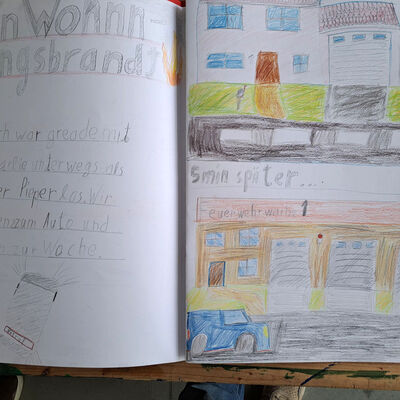 n Wohnn
ngsbrandt
ch war greade mit
arlie unterwegs als
er Pieper los. Wir
en zum Auto und
n zur Wache.
5min später...
Feuerwehrwache 1